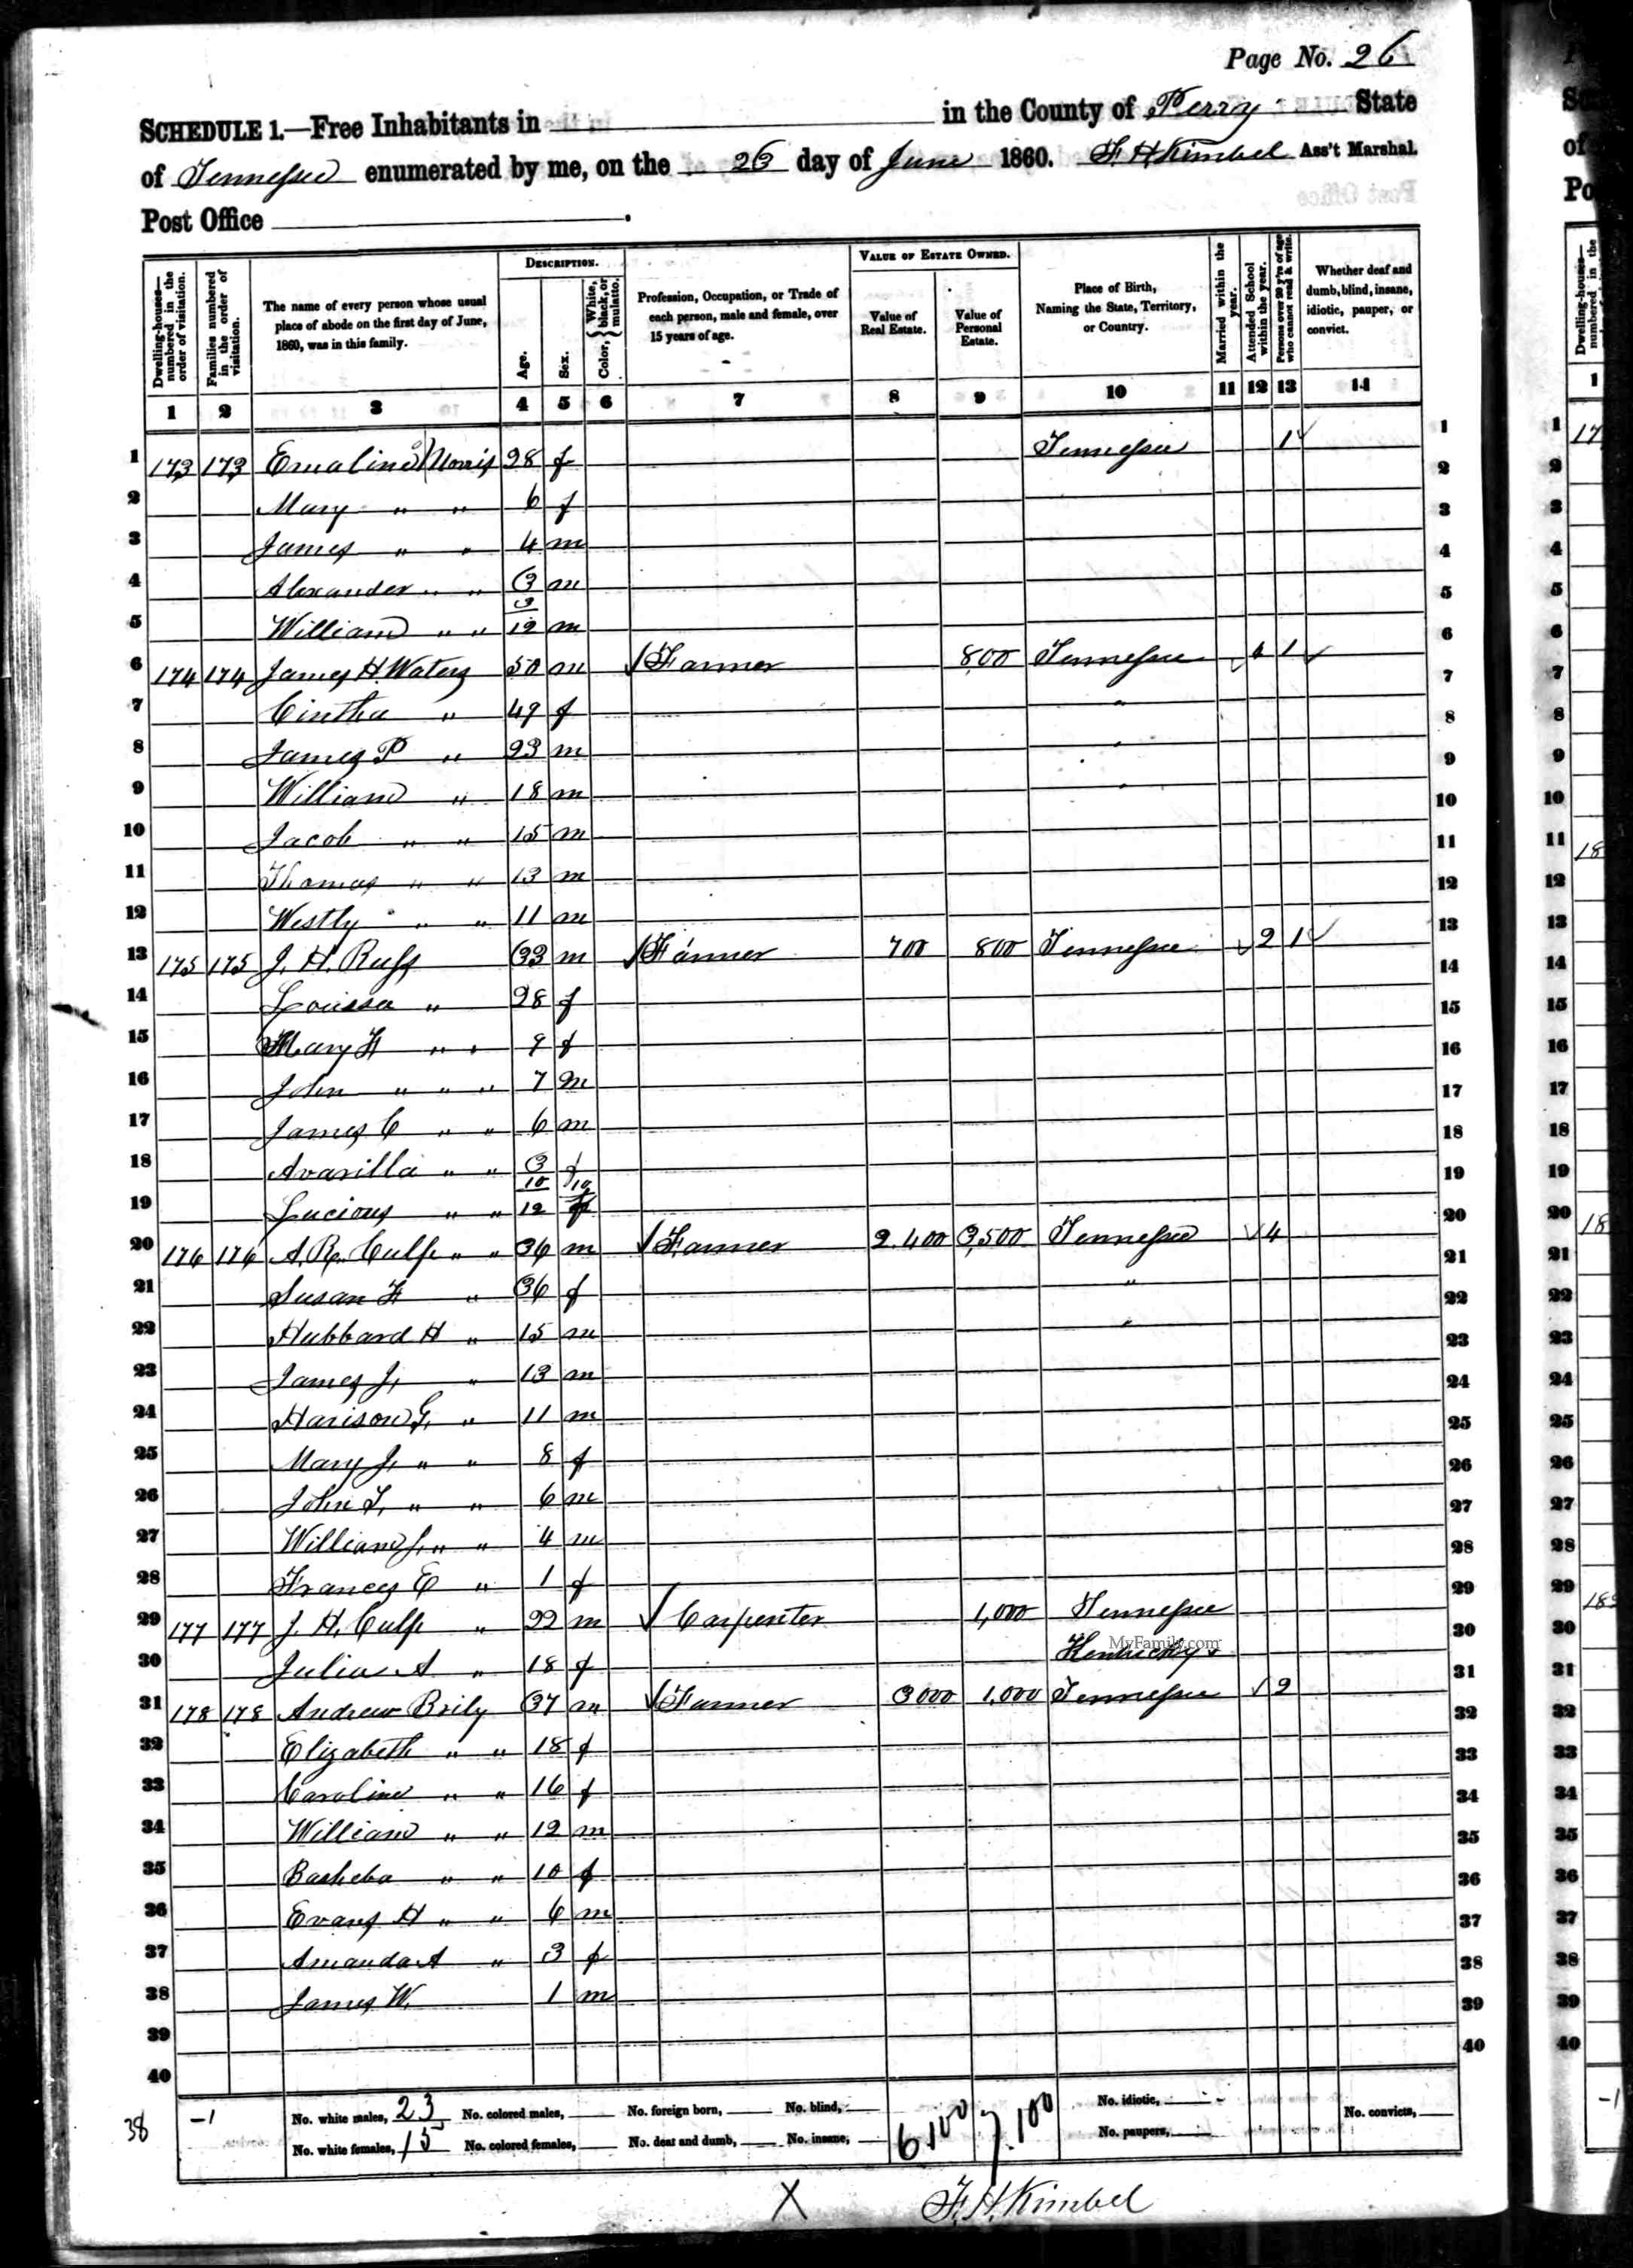 Page No. 26
SCHEDULE 1.—Free Inhabitants in in the County of Perry State
of Tennessee enumerated by me, on the 26 day of June 1860. F. H Kimbel Ass't Marshal.
Post Office
Dwelling-houses—numbered in the order of visitation.
Families numbered in the order of visitation.
The name of every person whose usual place of abode on the first day of June, 1860, was in this family.
DESCRIPTION.
Age.
Sex.
Color, { White, black, or mulatto. }
Profession, Occupation, or Trade of each person, male and female, over 15 years of age.
VALUE OF ESTATE OWNED.
Value of Real Estate.
Value of Personal Estate.
Place of Birth, Naming the State, Territory, or Country.
Married within the year.
Attended School within the year.
Persons over 20 y'rs of age who cannot read & write.
Whether deaf and dumb, blind, insane, idiotic, pauper, or convict.
1 2 3 4 5 6 7 8 9 10 11 12 13 14
1 173 173 Emaline Norris 28 f Tennessee 1 1
2 Mary " " 6 f 2
3 James " " 4 m 3
4 Alexander " " 3 m 4
5 William " " 9/12 m 5
6 174 174 James H. Waters 50 m Farmer 800 Tennessee 4 1 6
7 Cintha " 49 f " 7
8 James P " 23 m " 8
9 William " 18 m " 9
10 Jacob " " 15 m 10
11 Thomas " " 13 m 11
12 Westly " " 11 m 12
13 175 175 J. H. Russ 33 m Farmer 700 800 Tennessee 2 1 13
14 Louissa " 28 f 14
15 Mary F " " 9 f 15
16 John " " " 7 m 16
17 James C " " 6 m 17
18 Avarilla " " 3 f 18
19 Lucious " " 10/12 19
20 176 176 A. R. Culp " " 36 m Farmer 2.400 3,500 Tennessee 4 20
21 Susan F " 36 f " 21
22 Hubbard H " 15 m " 22
23 James J. " 13 m 23
24 Harison G. " 11 m 24
25 Mary J. " " 8 f 25
26 John T. " " 6 m 26
27 William J. " " 4 m 27
28 Frances E " 1 f 28
29 177 177 J. H. Culp " 22 m Carpenter 1,000 Tennessee 29
30 Julia A " 18 f Kentucky 30
MyFamily.com
31 178 178 Andrew Brily 37 m Farmer 3000 1,000 Tennessee 2 31
32 Elizabeth " " 18 f 32
33 Caroline " " 16 f 33
34 William " " 12 m 34
35 Basheba " " 10 f 35
36 Evans H " " 6 m 36
37 Amanda A " 3 f 37
38 James W. 1 m 38
39 39
40 40
38 -1 No. white males, 23 No. colored males, No. foreign born, No. blind, 6,100 7.100 No. idiotic, No. convicts,
No. white females, 15 No. colored females, No. deaf and dumb, No. insane, No. paupers,
X F. H. Kimbel